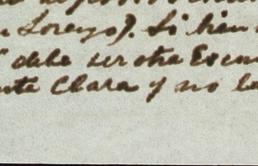 n Lorenzo). Si bien
debe ser otra Escu
nta Clara y no la